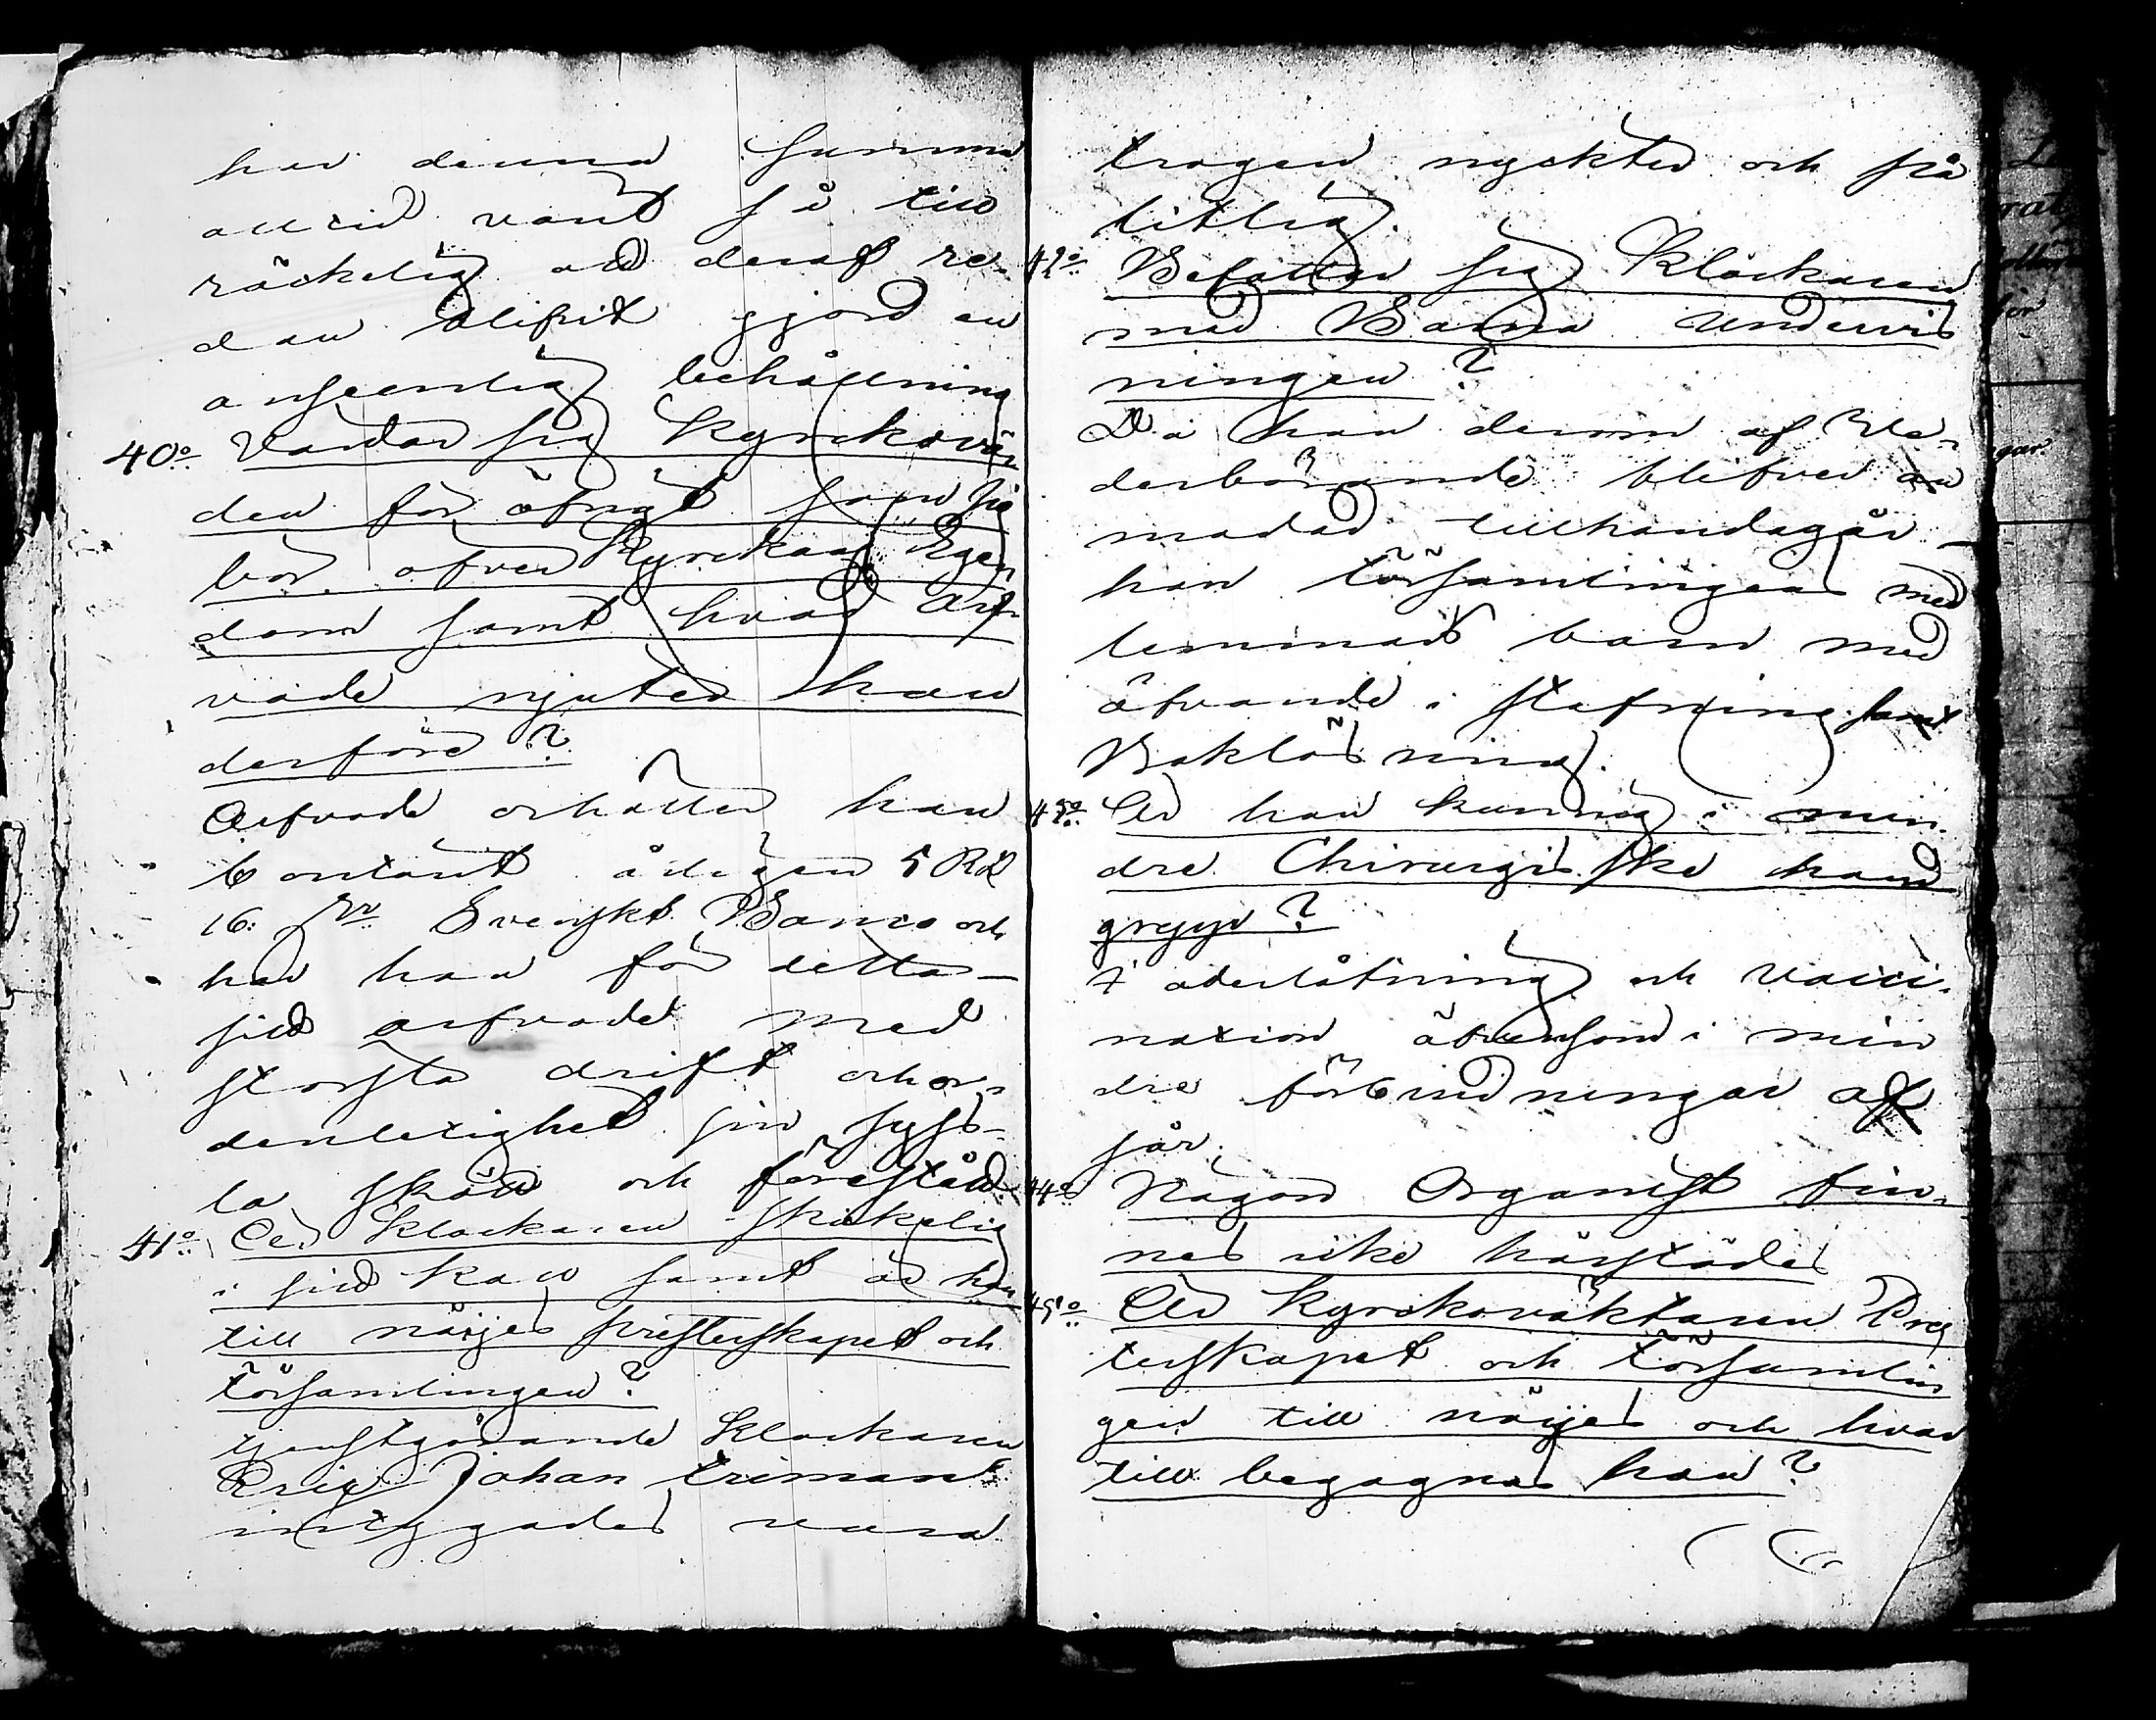 har denna summa
alltid varit så till
räckelig att deraf re-
dan blifvit gjord en
anseenlig behållning
40o. Vårdar sig Kyrckovär
den för öfrigt som sig
bör öfver Kyrckans Egen
dom samt hvad Arf-
vode njuter han
derföre?
Arfvode erhåller han
Contant årligen 5 Rd
16. Sk. Svenskt Banco och
har han för detta
sitt arfvode med
största drift och or-
dentelighet sin syss-
la skött och förestått.
41o. Är Klockaren skickelig
i sitt Kall samt är han
till nöijes presterskapet och
församlingen?
tjenstgörande Klockaren
Eric Johan Friman
intygades vara
trogen nyckter och på
litlig.
42o. Befattar sig Klockaren
med Barna Undervis
ningen?
Då han derom af Ve-
derbörande blifver an
modad tillhandagår
han församlingens med
lemmars barn med
öfvande i stafning samt
Bokläsning.
43o. Är han kunnig i min-
dre Chirurgiske hand
grepp?
I åderlåtning och vacci-
nation äfvensom i min
dre förbindningar af
sår.
44o. Någon Organist fin-
nes icke härstädes
45o. Är Kyrckoväktaren Pres
terskapet och församlin
gen till nöijes och hvar
till begagnas han?